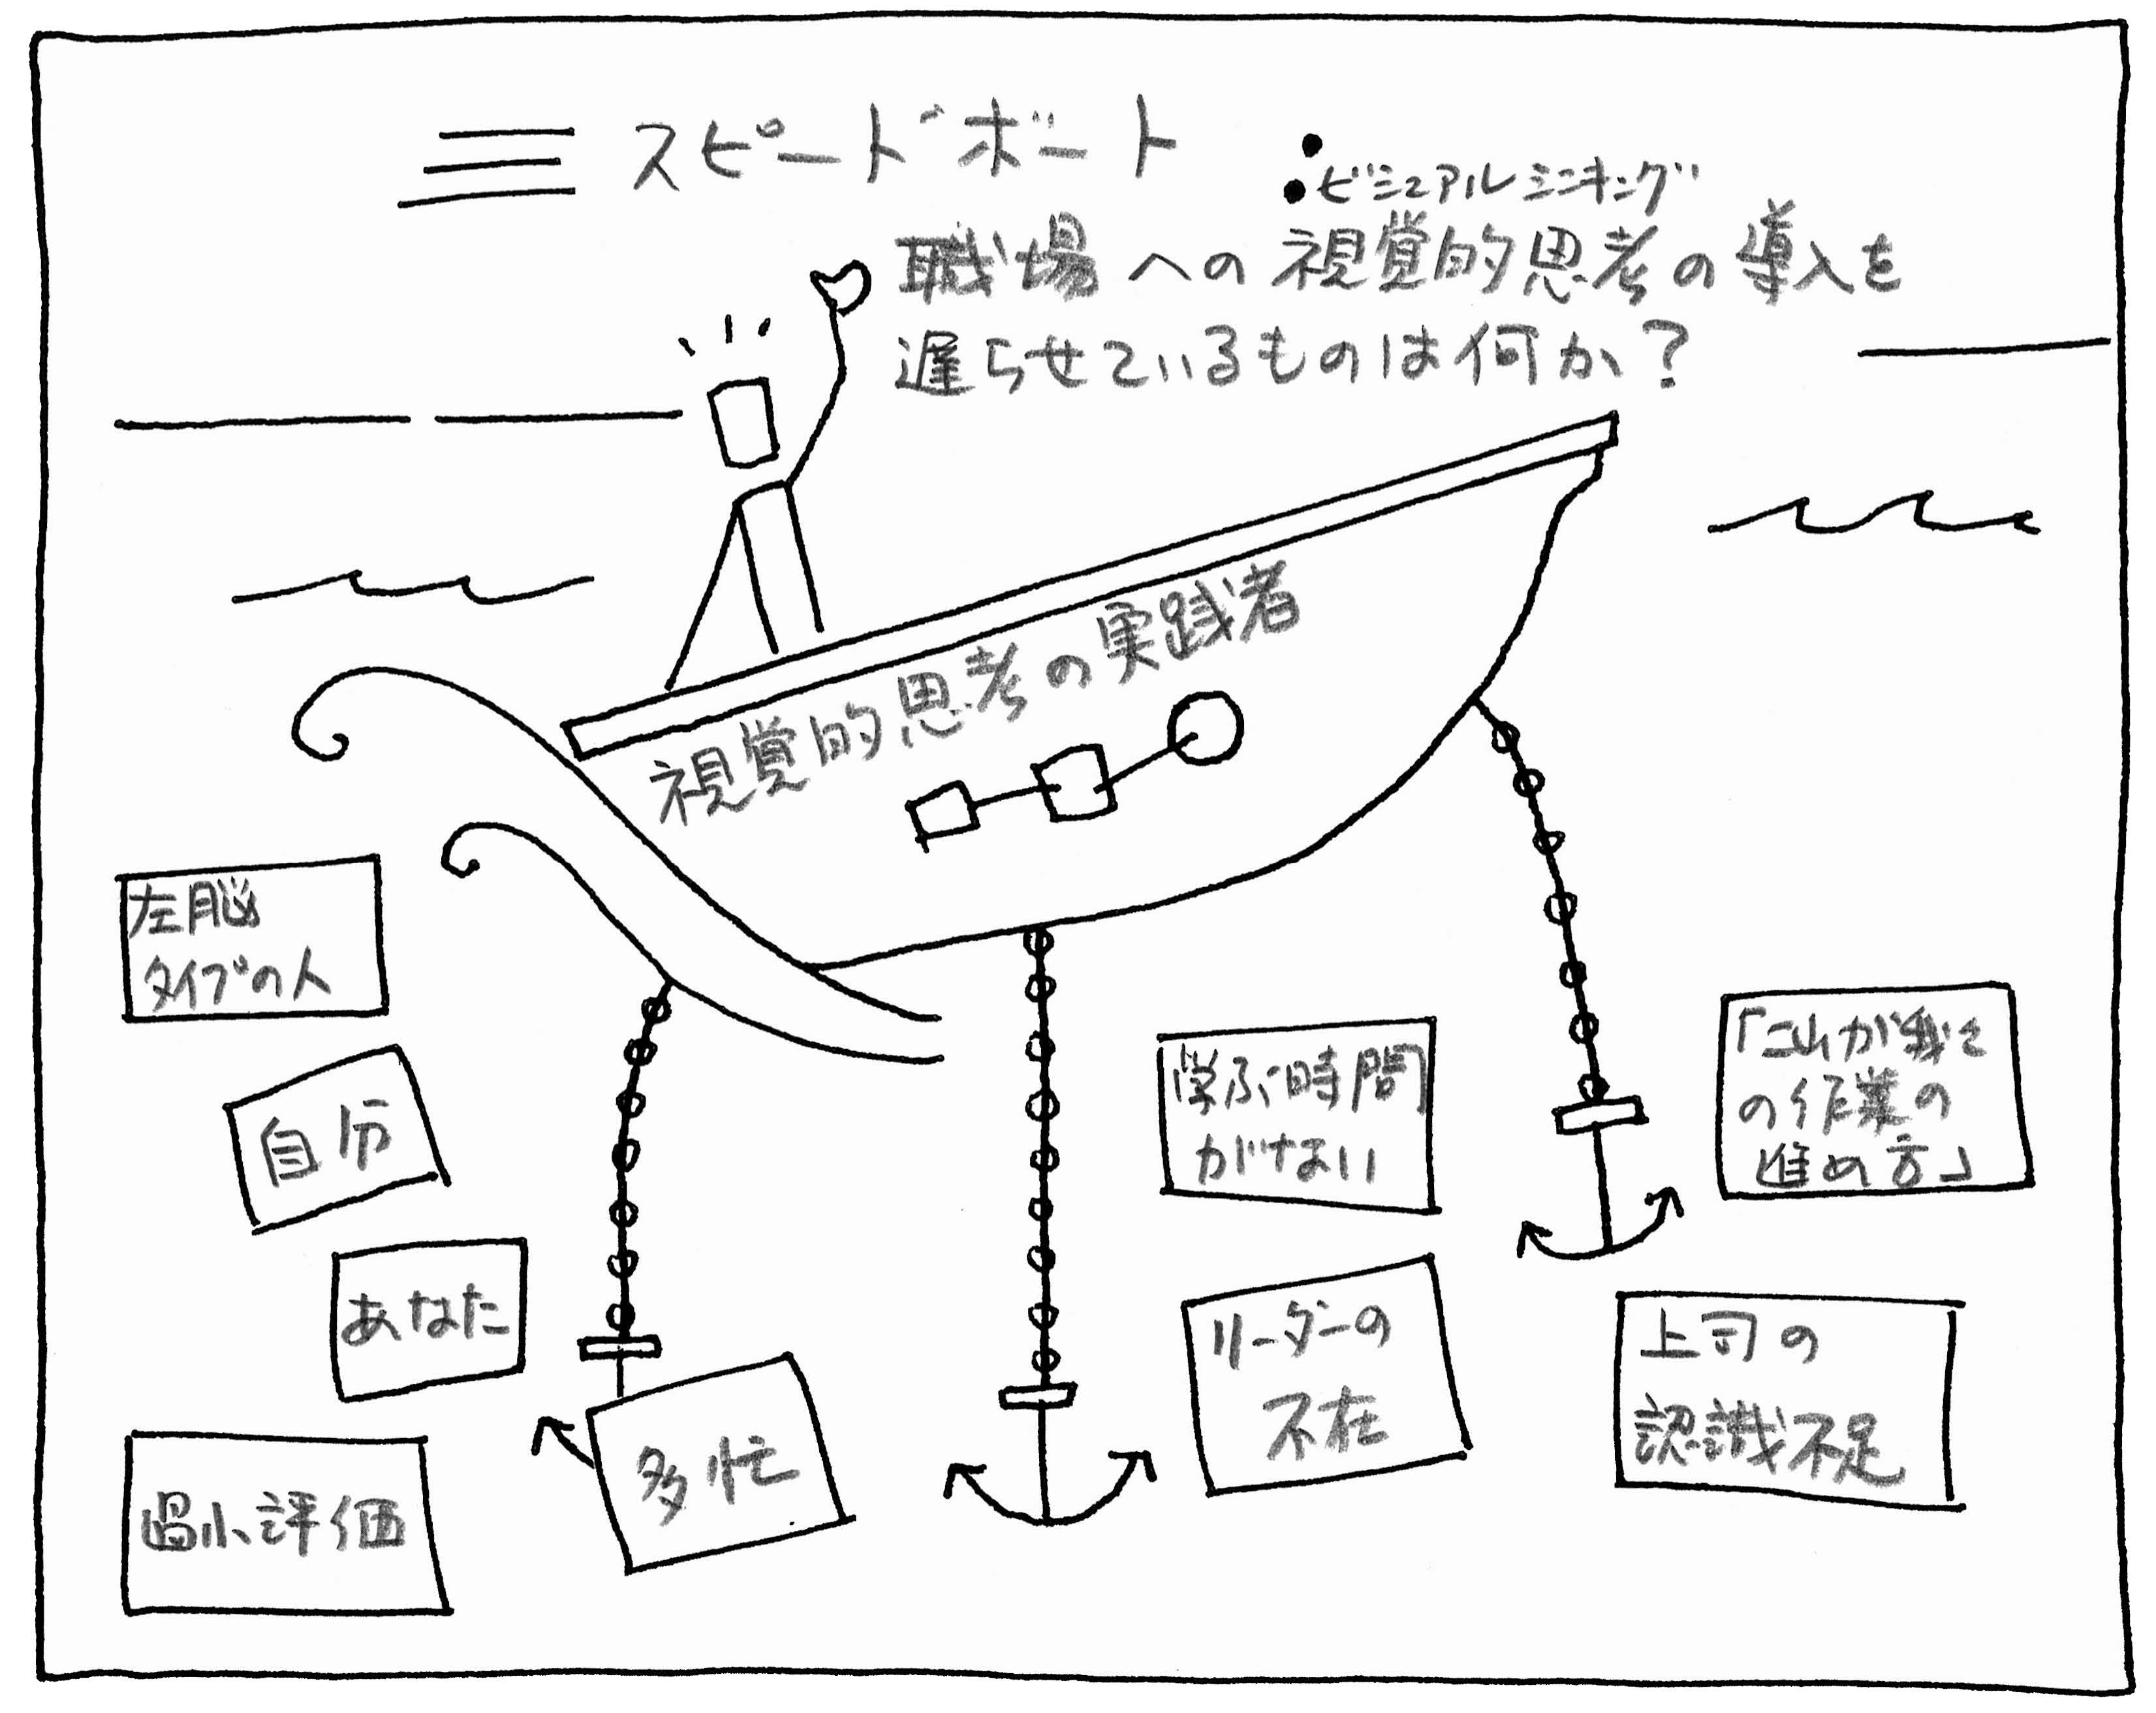 スピードボート
ビジュアルシンキング
職場への視覚的思考の導入を
遅らせているものは何か？
視覚的思考の実践者
左脳
タイプの人
自分
あなた
過小評価
多忙
学ぶ時間
がない
リーダーの
不在
「これが我々
の作業の
進め方」
上司の
認識不足